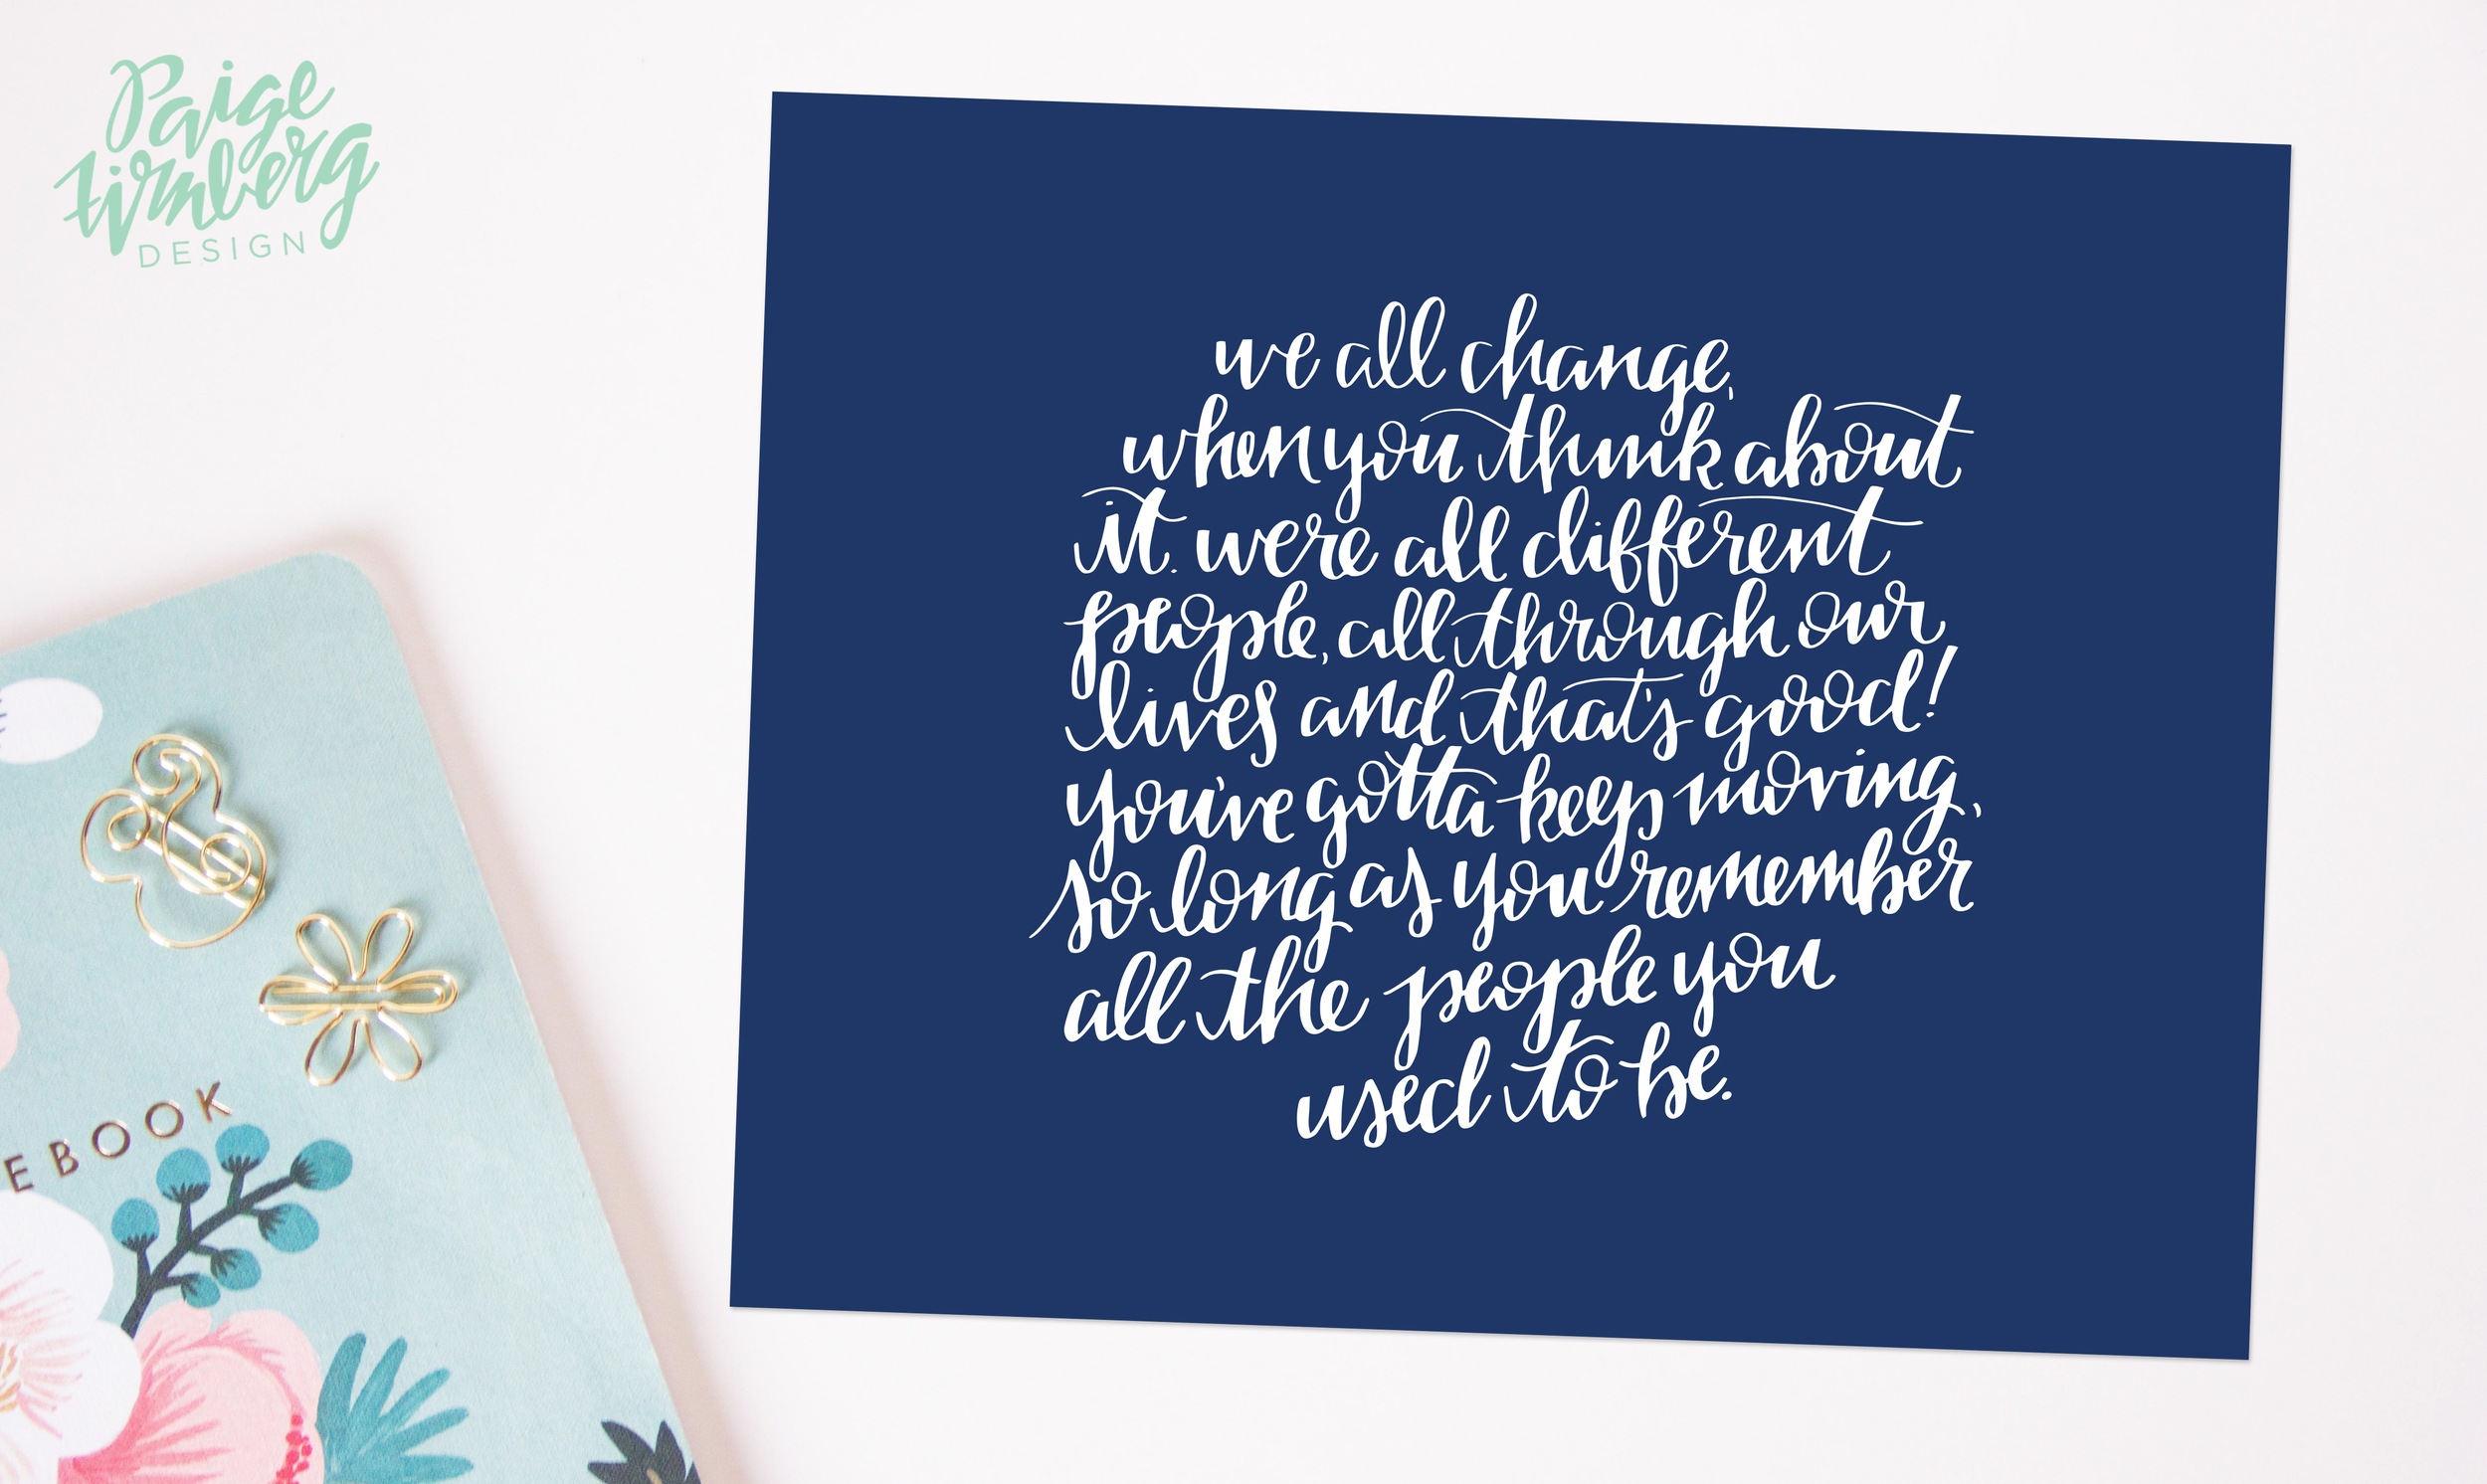 Paige
Firnberg
DESIGN
we all change,
when you think about
it. were all different
people, all through our
lives and that's good!
you've gotta keep moving,
so long as you remember
all the people you
used to be.
EBOOK